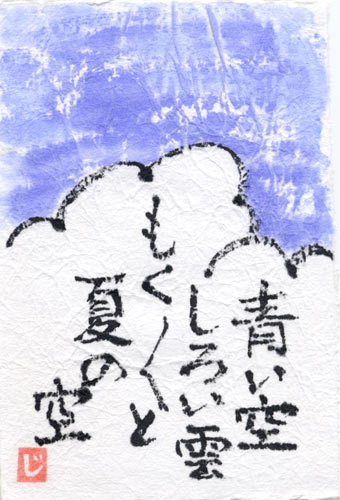 青い空
しろい雲
もく〱と
夏の空
じ